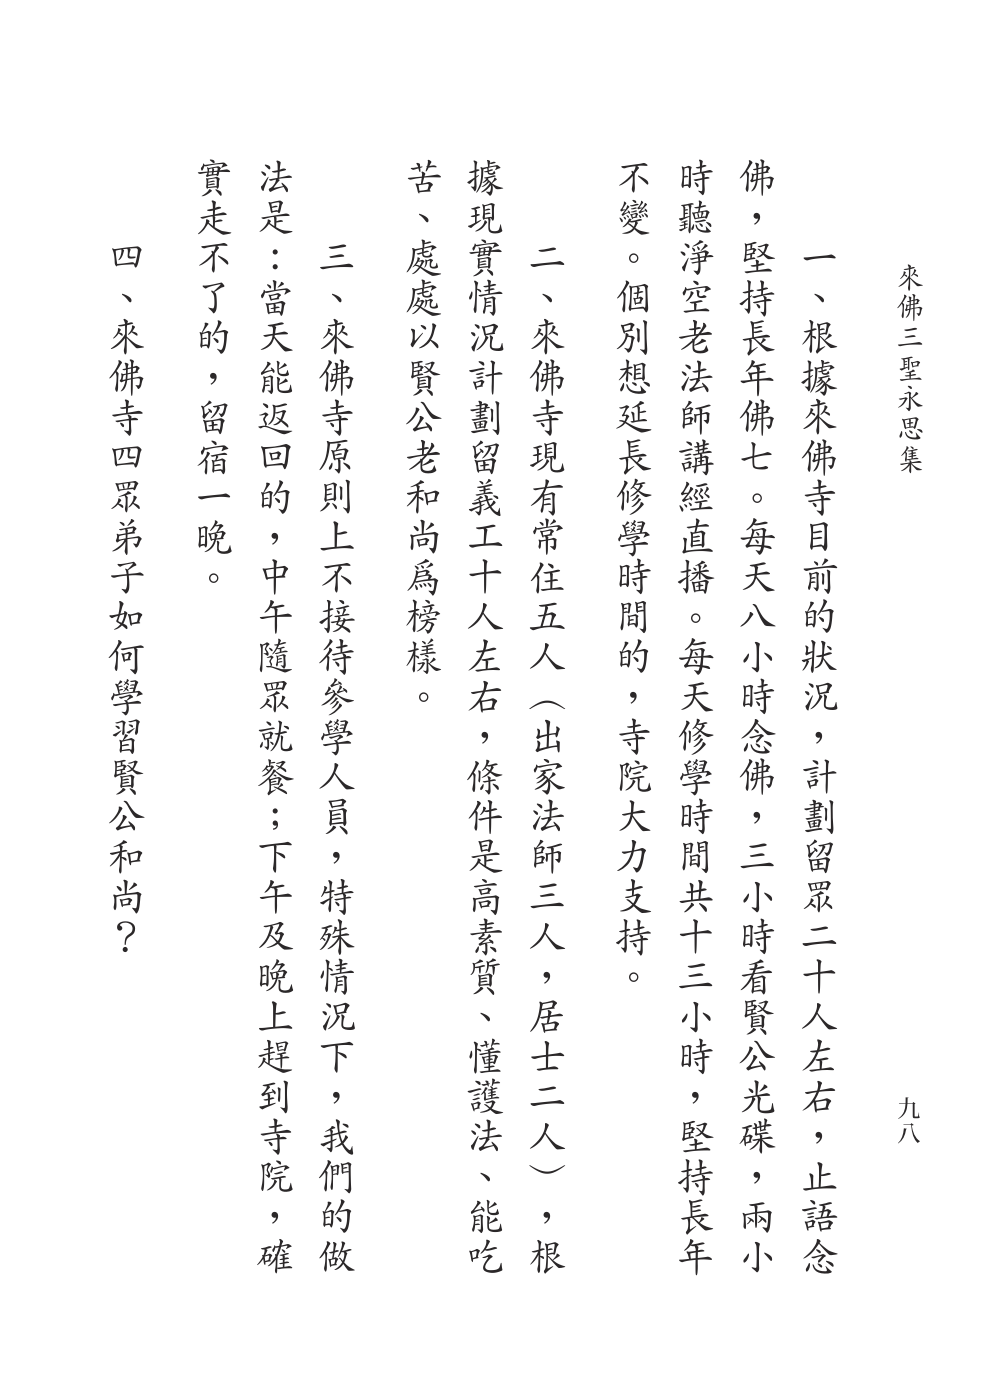 來佛三聖永思集
九八
一、根據來佛寺目前的狀況，計劃留眾二十人左右，止語念
佛，堅持長年佛七。每天八小時念佛，三小時看賢公光碟，兩小
時聽淨空老法師講經直播。每天修學時間共十三小時，堅持長年
不變。個別想延長修學時間的，寺院大力支持。
二、來佛寺現有常住五人（出家法師三人，居士二人），根
據現實情況計劃留義工十人左右，條件是高素質、懂護法、能吃
苦、處處以賢公老和尚爲榜樣。
三、來佛寺原則上不接待參學人員，特殊情況下，我們的做
法是：當天能返回的，中午隨眾就餐；下午及晚上趕到寺院，確
實走不了的，留宿一晚。
四、來佛寺四眾弟子如何學習賢公和尚？